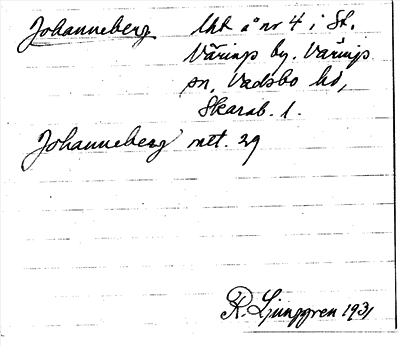 Johanneberg lht å nr 4 i St.
Värings by, Värings
sn, Vadsbo hd,
Skarab. l.
Johanneberg met. 29
R. Ljunggren 1931